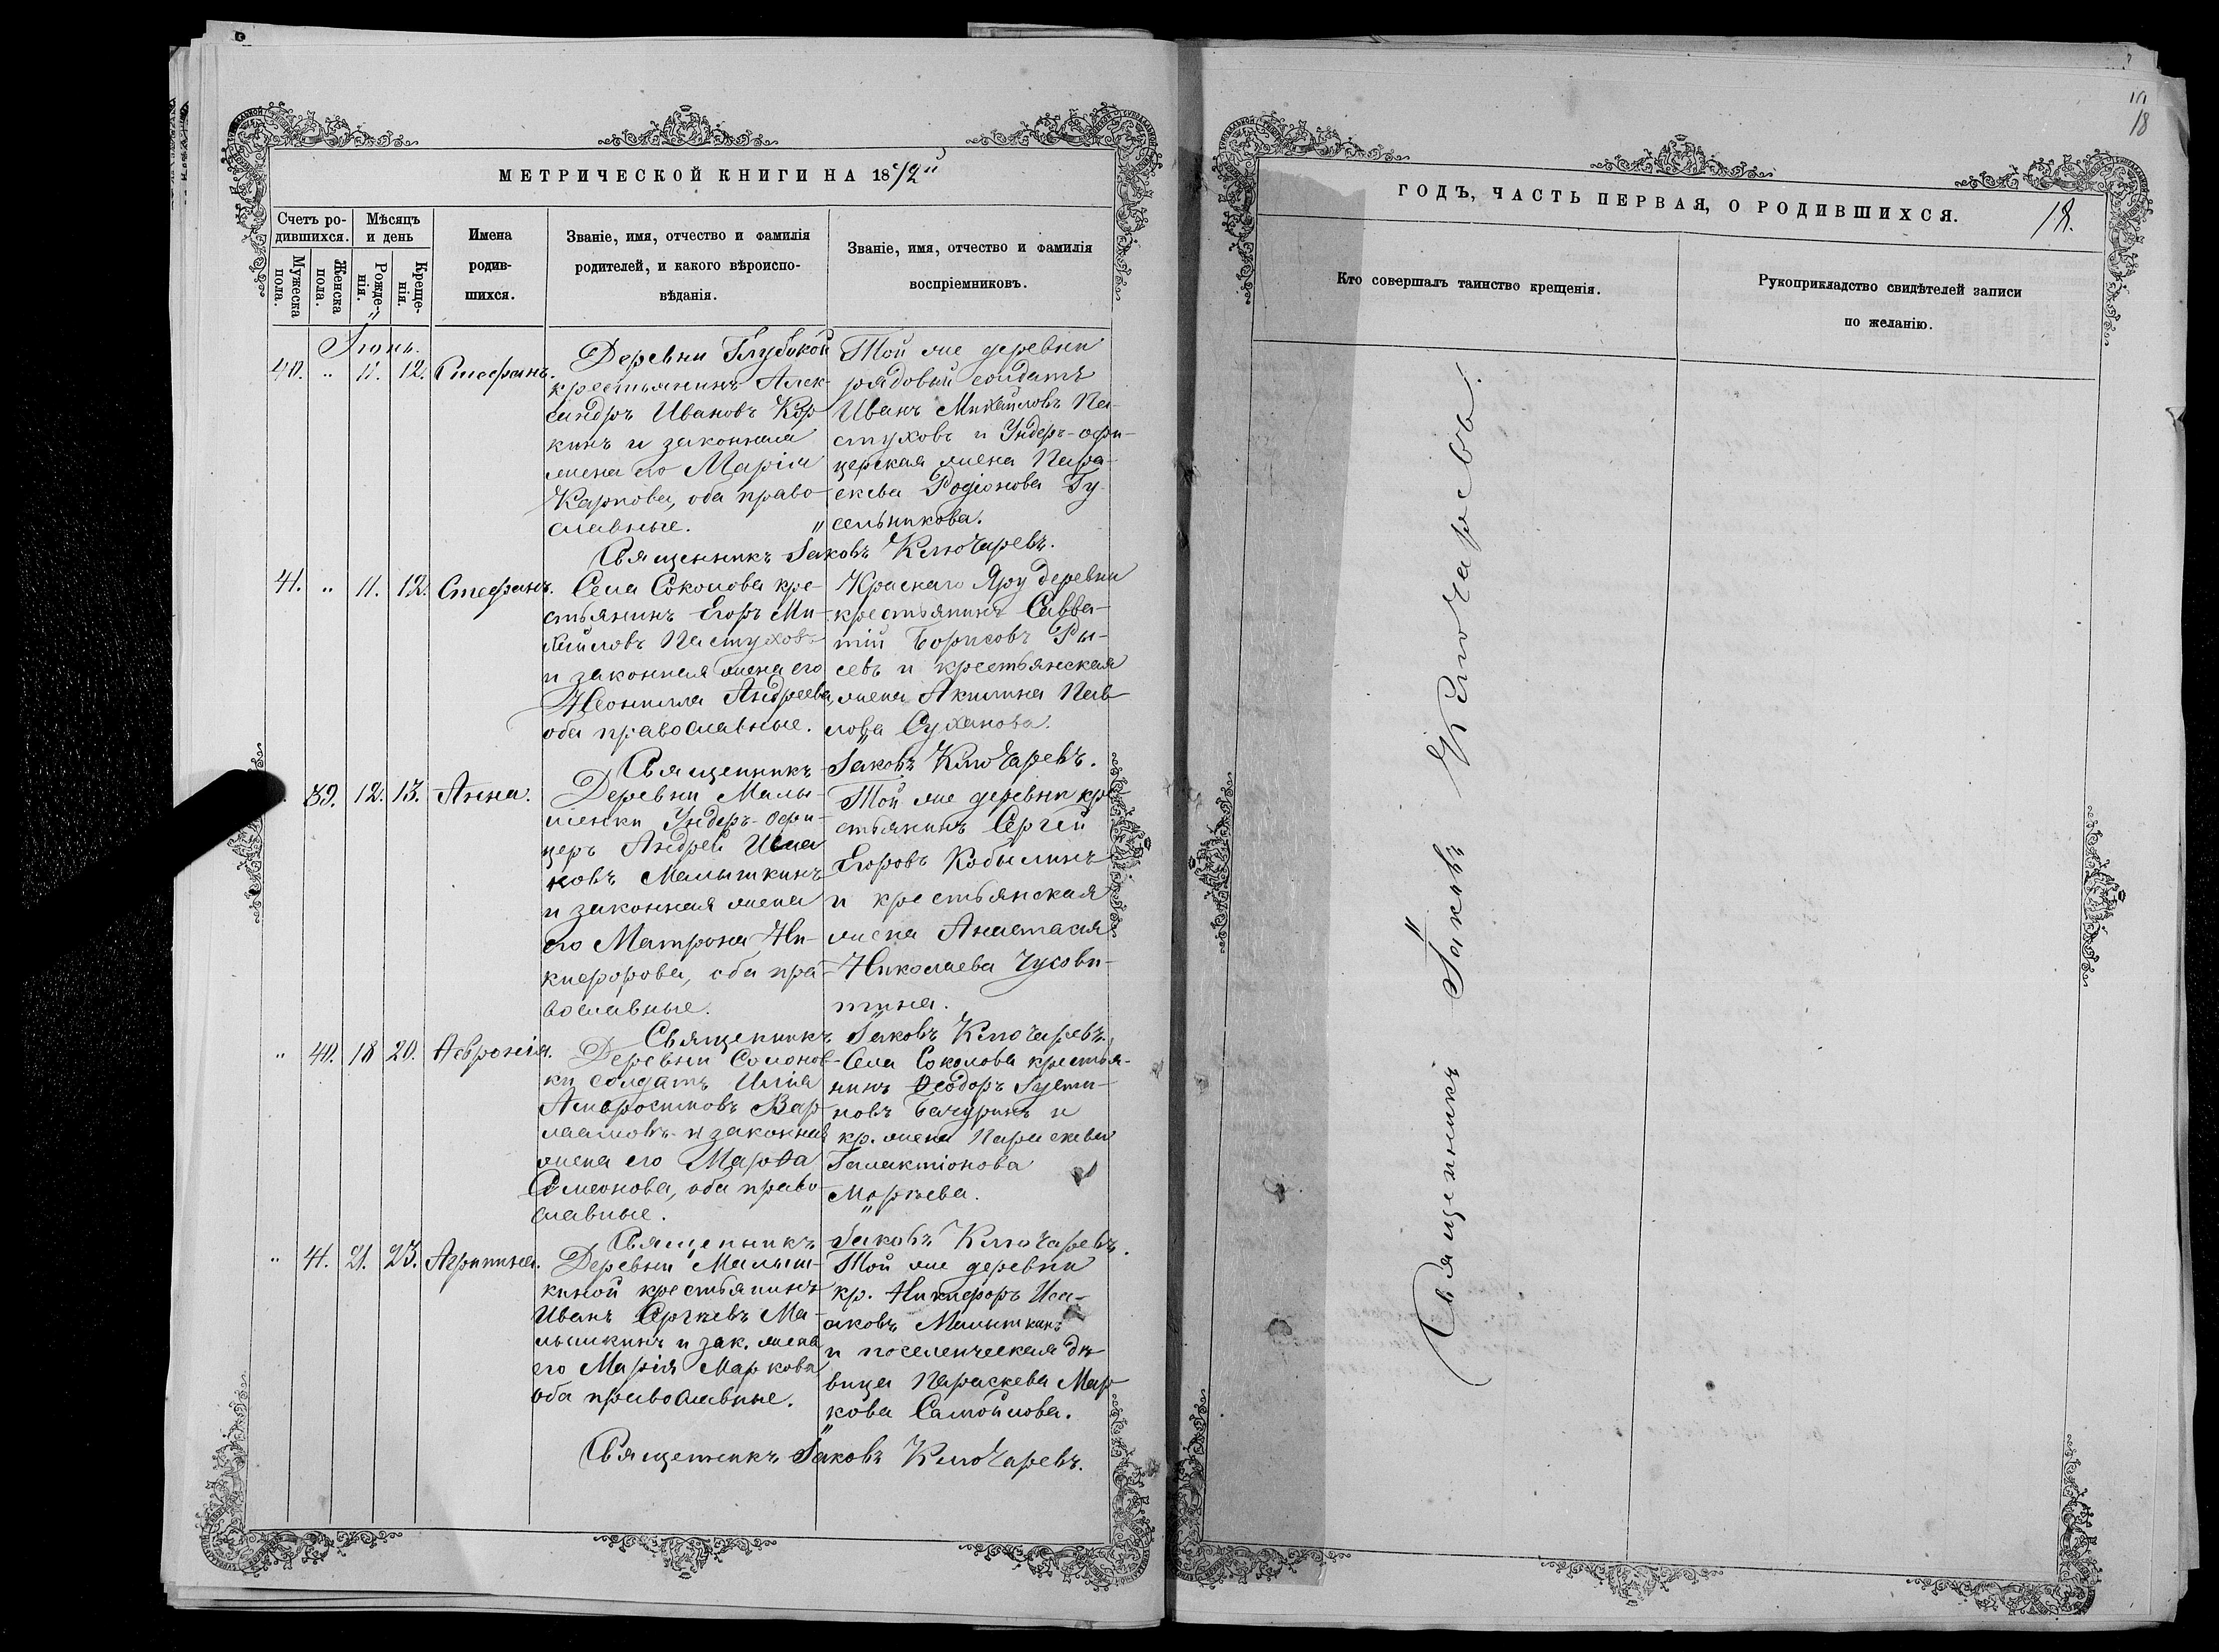 МЕТРИЧЕСКОЙ КНИГИ НА 1872й
Счетъ ро-
дившихся.
Мѣсяцъ
и день
Мужеска
пола.
Женска
пола.
Рожде-
нія.
Креще-
нія.
Имена
родив-
шихся.
Званіе, имя, отчество и фамилія
родителей, и какого вѣроиспо-
вѣданія.
Званіе, имя, отчество и фамилія
воспріемниковъ.
Іюнь.
40. " 11. 12. Стефанъ.
Деревни Глубокой
крестьянинъ Алек-
сандръ Ивановъ Кор-
кинъ и законная
жена его Марія
Карпова, оба право-
славные.
Той же деревни
рядовый солдатъ
Иванъ Михайловъ Па-
стуховъ и Ундеръ-офи-
церская жена Пара-
скева Родіонова Гу-
сельникова.
Священникъ Іаковъ Ключаревъ.
41. " 11. 12. Стефанъ.
Села Соколова кре-
стьянинъ Егоръ Ми-
хайловъ Пастуховъ
и законная жена его
Неонилла Андреева,
оба православные.
Краснаго Яру деревни
крестьянинъ Савва-
тій Борисовъ Ры-
севъ и крестьянская
жена Акилина Пав-
лова Суханова.
Священникъ Іаковъ Ключаревъ.
39. 12. 13. Анна.
Деревни Малы-
шенки Ундеръ-Офи-
церъ Андрей
новъ Малышкинъ
и законная жена
его Матрона Ни-
кифорова, оба пра-
вославные.
Той же деревни кре-
стьянинъ Сергій
Егоровъ Кобылинъ
и крестьянская
жена Анастасія
Николаева Чусови-
тина.
Священникъ Іаковъ Ключаревъ.
" 40. 18 20. Февронія.
Деревни Солонов-
ки солдатъ Илія
Амвросимовъ Вар-
лаамовъ и законная
жена его Марѳа
Симеонова, оба право-
славные.
Села Соколова крестья-
нинъ Ѳеодоръ Іусти-
новъ Бачуринъ и
кр. жена Параскева
Галактіонова
Моргаева.
Священникъ Іаковъ Ключаревъ.
" 41. 21. 23. Агрипина.
Деревни Малыш-
киной крестьянинъ
Иванъ Сергѣевъ Ма-
лышкинъ и зак. жена
его Марія Маркова
оба православные.
Той же деревни
кр. Никифоръ Иса-
аковъ Малышкинъ
и поселенческая дѣ-
вица Параскева Мар
кова Самойлова.
Священникъ Іаковъ Ключаревъ.
18
ГОДЪ, ЧАСТЬ ПЕРВАЯ, О РОДИВШИХСЯ.
18.
Кто совершалъ таинство крещенія.
Рукоприкладство свидѣтелей записи
по желанію.
Священникъ Іаковъ Ключаревъ.